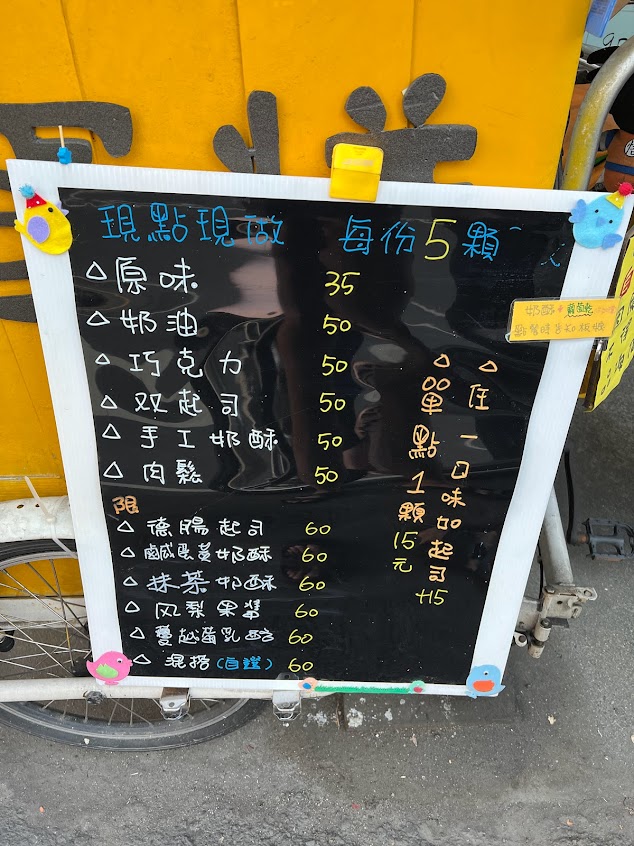 現點現做 每份5顆
△原味 35
△奶油 50
△巧克力 50
△双起司 50
△手工奶酥 50
△肉鬆 50
限
△德腸起司 60
△鹹蛋黃奶酥 60
△抹茶奶酥 60
△风梨果醬 60
△蔓越莓乳酪 60
△混搭(自選) 60
△任一口味加起司+15
△單點1顆15元
奶酥+葡萄乾
點餐時告知板娘